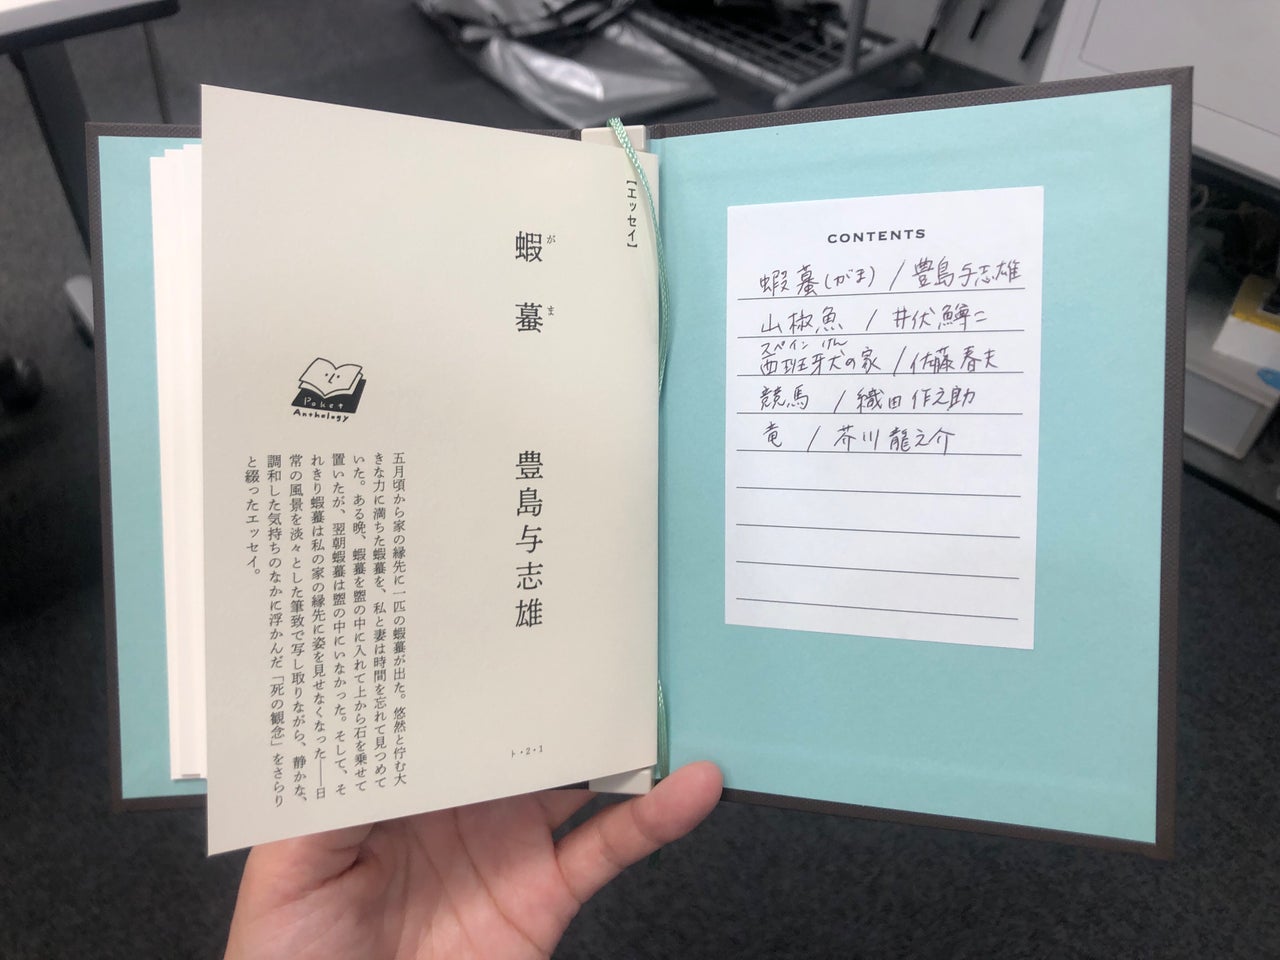 CONTENTS
蝦蟇(がま) / 豊島与志雄
山椒魚 / 井伏鱒二
スペイン けん
西班牙犬の家 / 佐藤春夫
競馬 / 織田作之助
竜 / 芥川龍之介
【エッセイ】
がま
蝦蟇
豊島与志雄
ト・2・1
Poket
Anthology
五月頃から家の縁先に一匹の蝦蟇が出た。悠然と佇む大
きな力に満ちた蝦蟇を、私と妻は時間を忘れて見つめて
いた。ある晩、蝦蟇を盥の中に入れて上から石を乗せて
置いたが、翌朝蝦蟇は盥の中にいなかった。そして、そ
れきり蝦蟇は私の家の縁先に姿を見せなくなった――日
常の風景を淡々とした筆致で写し取りながら、静かな、
調和した気持ちのなかに浮かんだ「死の観念」をさらり
と綴ったエッセイ。